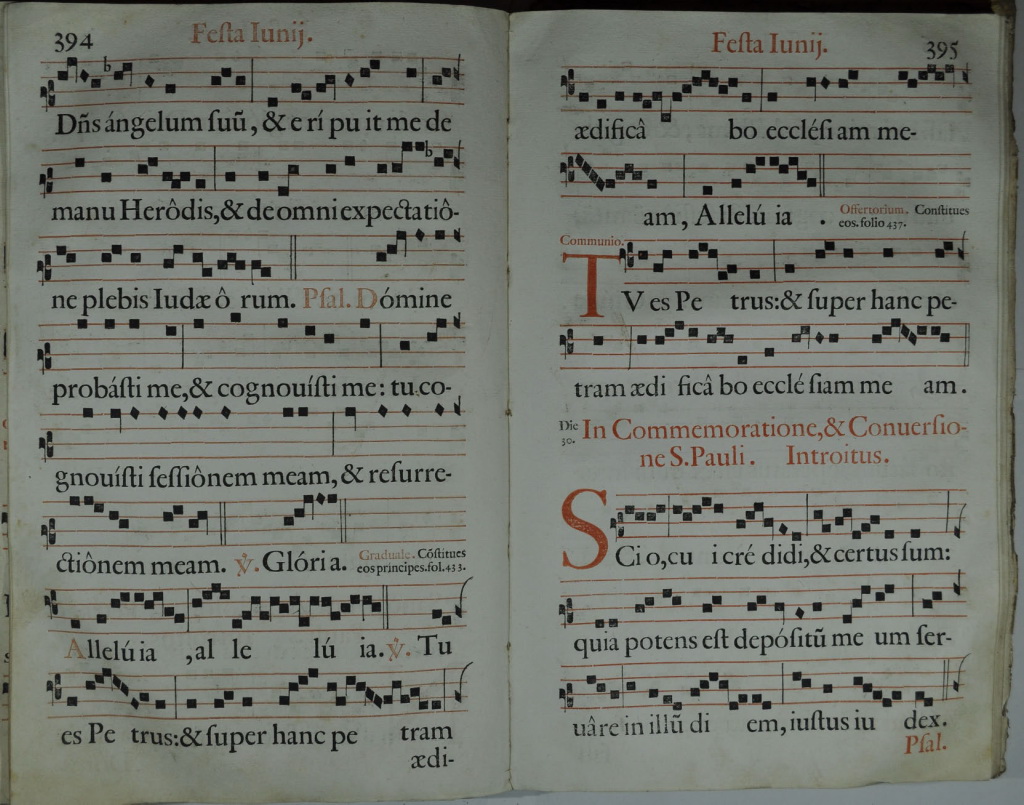 394
Feſta Iunij.
Dñs ángelum ſuũ, & e rí pu it me de
manu Herôdis, & de omni expectatiô-
ne plebis Iudæ ô rum. Pſal. Dómine
probáſti me, & cognouíſti me: tu co-
gnouíſti ſeſſiônem meam, & reſurre-
ctiônem meam. ℣. Glóri a. Graduale. Cõſtitues
eos principes. fol. 433.
Allelú ia , al le lú ia. ℣. Tu
es Pe trus: & ſuper hanc pe tram
ædi-
Feſta Iunij.
395
ædificâ bo eccléſi am me-
am, Allelú ia . Offertorium. Conſtitues
eos. folio 437.
Communio.
TV es Pe trus: & ſuper hanc pe-
tram ædi ficâ bo ecclé ſiam me am.
Die
30. In Commemoratione, & Conuerſio-
ne S. Pauli. Introitus.
SCi o, cu i cré didi, & certus ſum:
quia potens eſt depóſitũ me um ſer-
uâre in illũ di em, iuſtus iu dex.
Pſal.